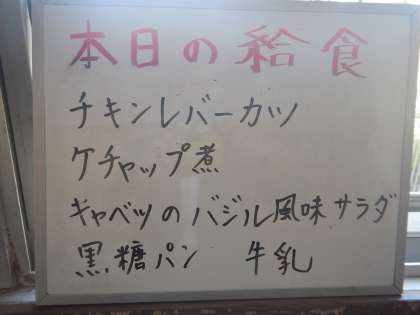 本日の給食
チキンレバーカツ
ケチャップ煮
キャベツのバジル風味サラダ
黒糖パン 牛乳